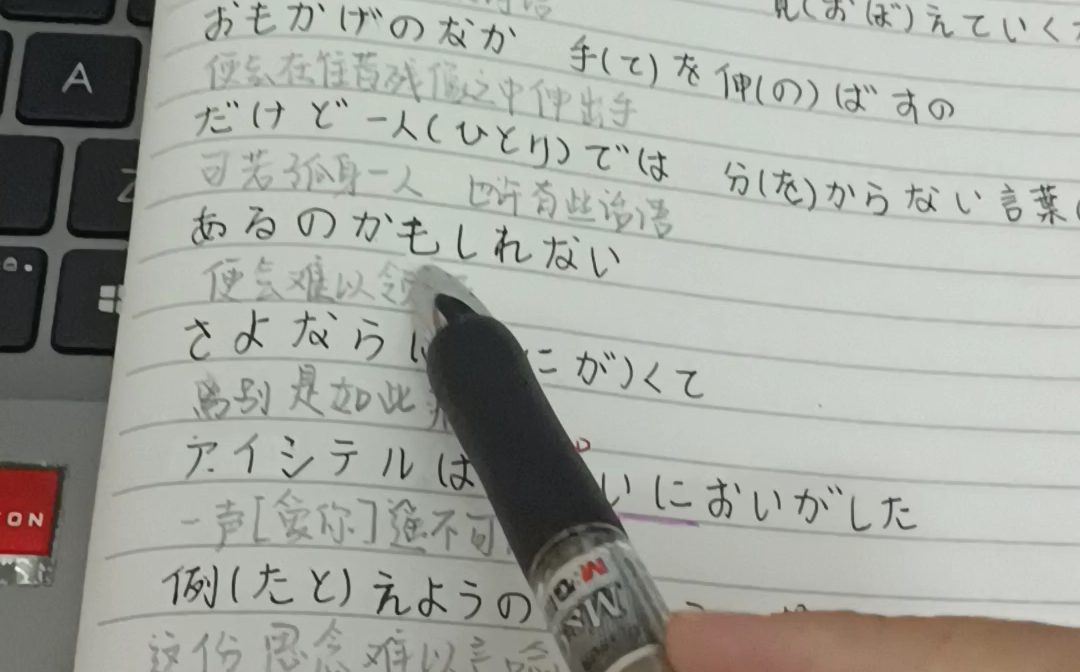 えていく
おもかげのなか 手(て)を伸(の)ばすの
便会在往昔残像之中伸出手
だけど一人(ひとり)では 分(を)からない言葉(
可若孤身一人 也许有些话语
あるのかもしれない
便会难以
さよなら にがくて
离别是如此
アイシテルは いにおいがした
一声[爱你]遥不可
例(たと)えようの
这份思念难以言
A
Z
ON
M&G